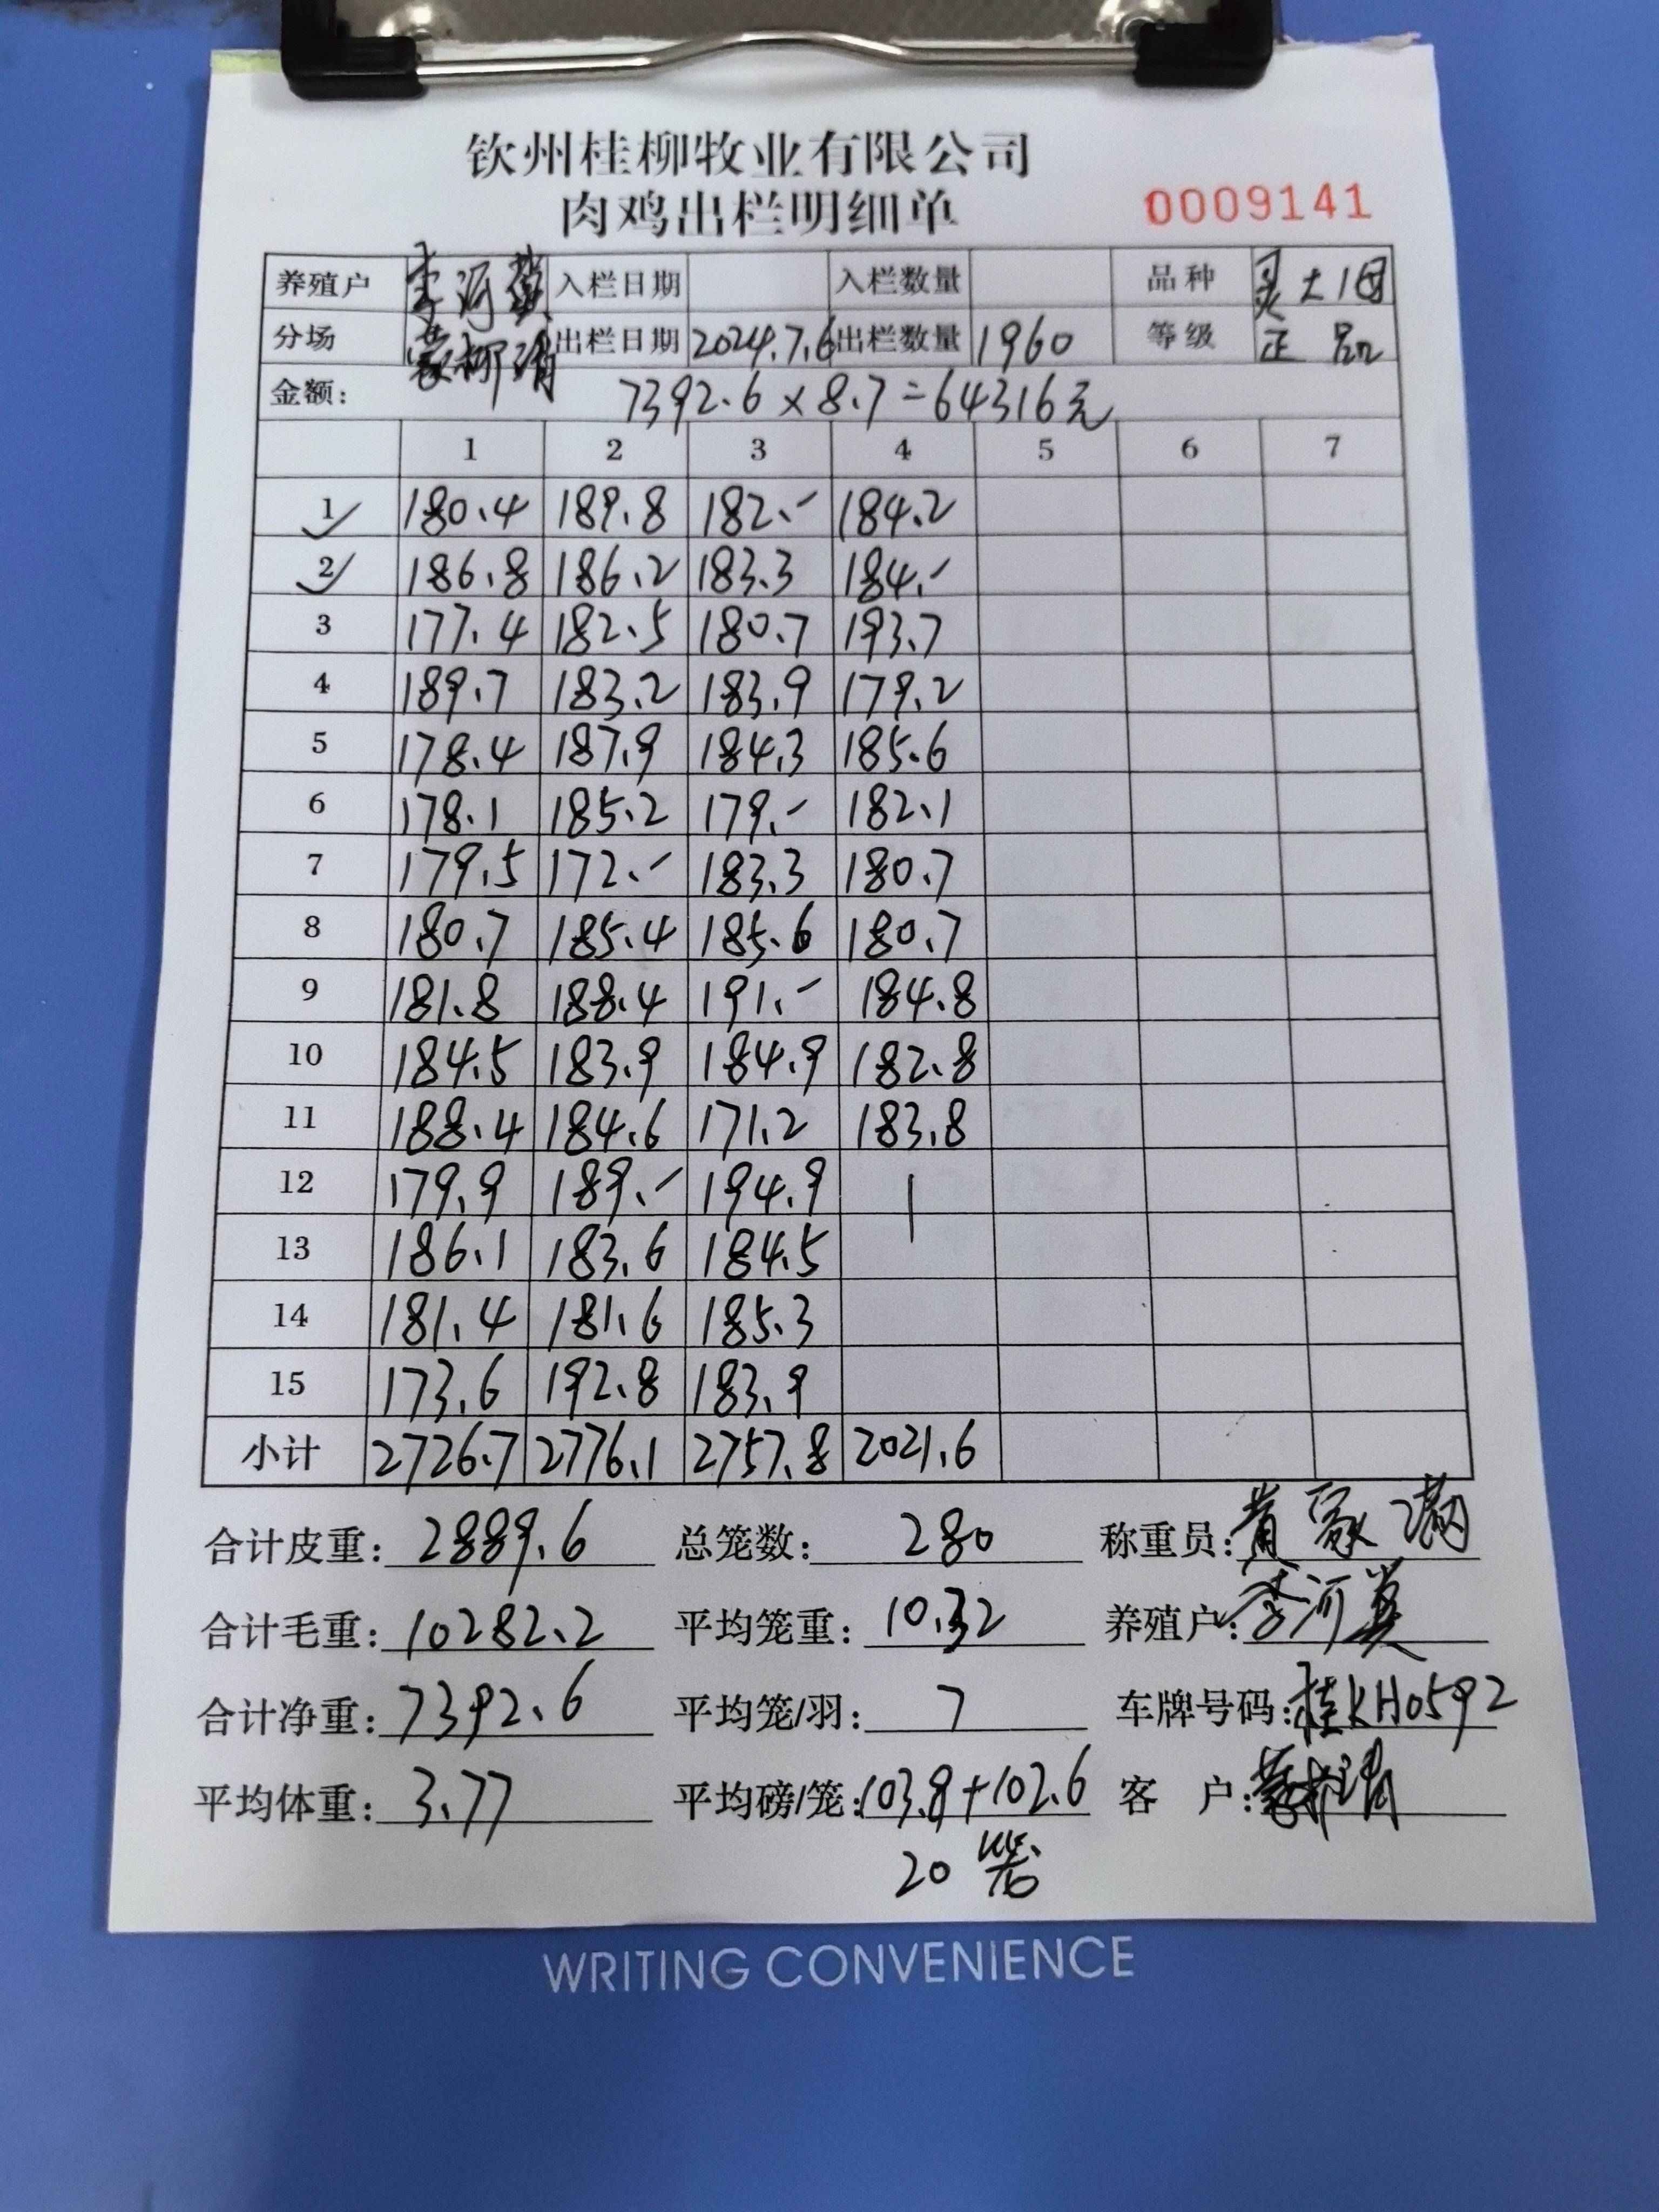 钦州桂柳牧业有限公司
肉鸡出栏明细单 0009141
养殖户 李河 入栏日期 入栏数量 品种 灵土1
分场 蒙柳清 出栏日期 2024.7.6 出栏数量 1960 等级 正品
金额: 7392.6×8.7=64316元
1 2 3 4 5 6 7
1 180.4 189.8 182.- 184.2
2 186.8 186.2 183.3 184.-
3 177.4 182.5 180.7 193.7
4 189.7 183.2 183.9 179.2
5 178.4 187.9 184.3 185.6
6 178.1 185.2 179.- 182.1
7 179.5 172.- 183.3 180.7
8 180.7 185.4 185.6 180.7
9 181.8 188.4 191.- 184.8
10 184.5 183.9 184.9 182.8
11 188.4 184.6 171.2 183.8
12 179.9 189.- 194.9
13 186.1 183.6 184.5
14 181.4 181.6 185.3
15 173.6 192.8 183.9
小计 2726.7 2776.1 2757.8 2021.6
合计皮重: 2889.6 总笼数: 280 称重员: 黄家
合计毛重: 10282.2 平均笼重: 10.32 养殖户: 李河
合计净重: 7392.6 平均笼/羽: 7 车牌号码: 桂KH0592
平均体重: 3.77 平均磅/笼: 103.8+102.6 客 户:
20 笼
WRITING CONVENIENCE